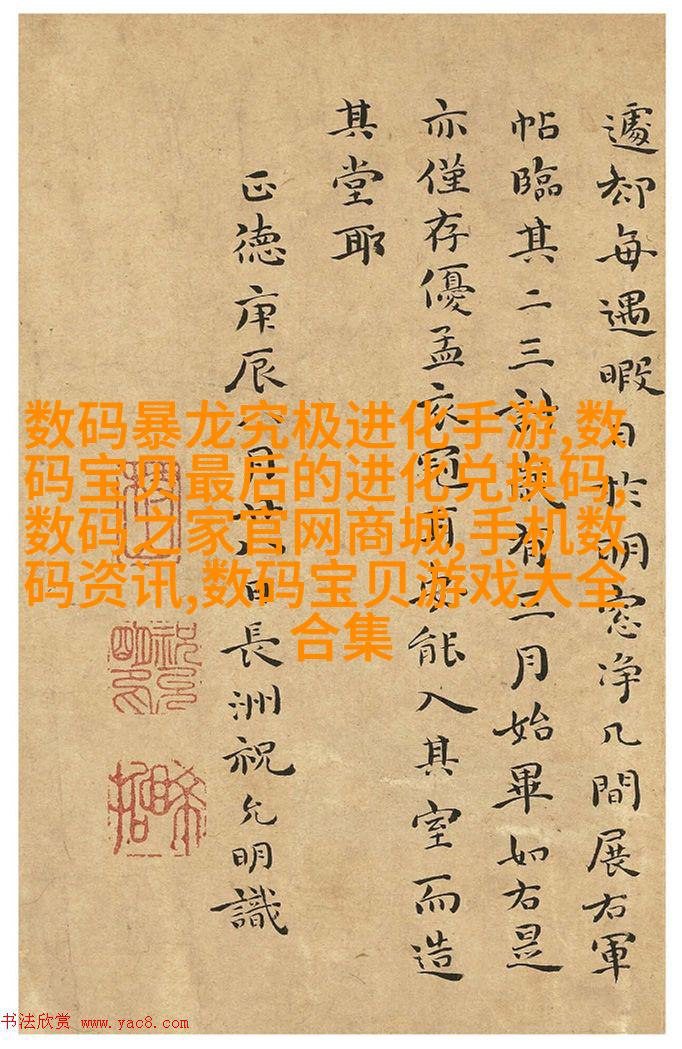 遽却每遇暇日於明窓净几間展右軍
帖臨其二三有三月始畢如右是
亦僅存優孟衣冠而安能入其室而造
其堂耶
正德庚辰月廿日長洲祝允明識
数码暴龙究极进化手游,数
码宝贝最后的进化兑换码,
数码之家官网商城,手机数
码资讯,数码宝贝游戏大全
合集
书法欣赏 www.yac8.com